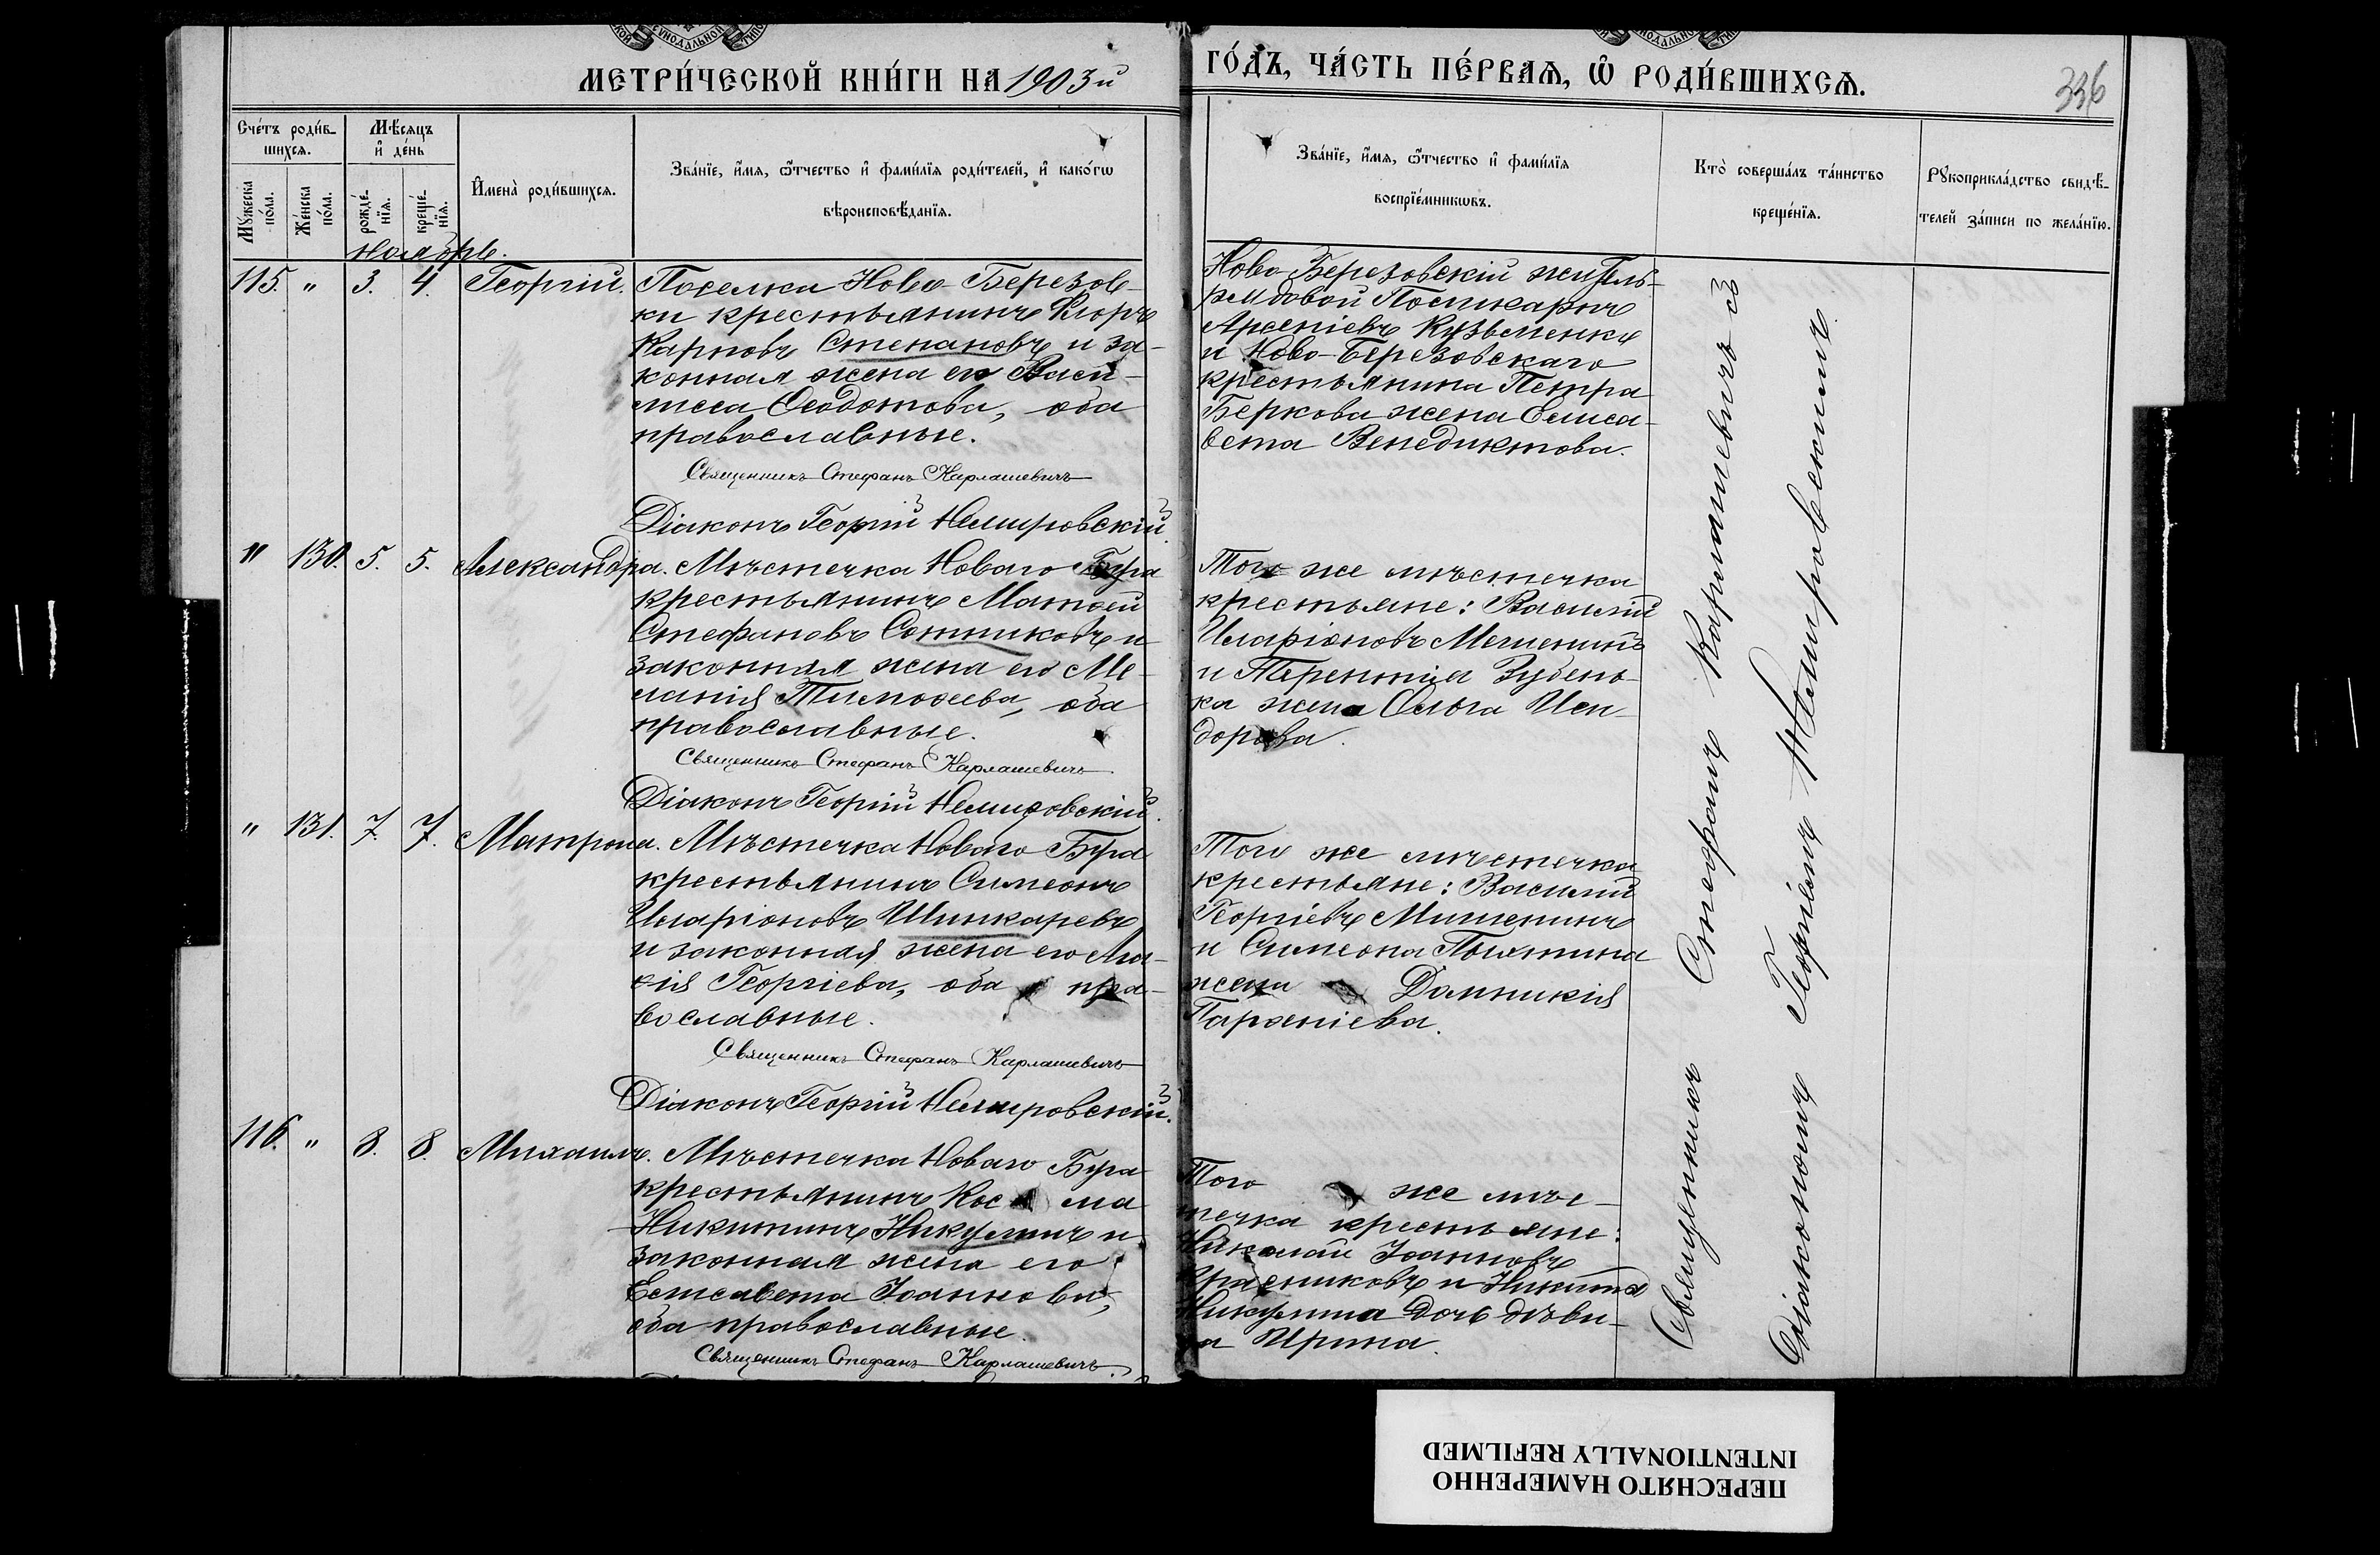 МЕТРИ́ЧЕСКОЙ КНИ́ГИ НА 1903й
ГО́ДЪ, ЧА́СТЬ ПЕ́РВАѦ, Ѿ РОДИ́ВШИХСѦ.
336
Сче́тъ роди́в-
шихсѧ.
Мѣ́сяцъ
и҆ де́нь
Мꙋ́жеска по́ла.
Же́нска по́ла.
рожде́-
нїѧ.
креще́-
нїѧ.
И҆мена̀ роди́вшихсѧ.
Зва́нїе, и҆́мѧ, ѻ҆́тчество и҆ фами́лїѧ роди́телей, и҆ како́гѡ
вѣроисповѣ́данїѧ.
Зва́нїе, и҆́мѧ, ѻ҆́тчество и҆ фами́лїѧ
воспрїе́мникѡвъ.
Кто̀ соверша́лъ та́инство
креще́нїѧ.
Рꙋкоприкла́дство свидѣ́-
телей за́писи по жела́нїю.
Ноябрь.
115. " 3. 4. Георгій. Поселка Ново-Березов-
ки крестьянинъ Карпъ
Карповъ Степановъ и за-
конная жена его Васи-
лисса Ѳеодотова, оба
православные.
Священникъ Стефанъ Карлашевичъ
Діаконъ Георгій Немировскій.
Ново-Березовскій житель-
рядовой Поликарпъ
Арсеніевъ Кузьменко
и Ново-Березовскаго
крестьянина Петра
Беркова жена Елиса-
вета Венедиктова.
" 130. 5. 5. Александра. Мѣстечка Новаго Буга
крестьянинъ Матѳей
Стефановъ Сотниковъ и
законная жена его Ме-
ланія Тимоѳеева, оба
православные.
Священникъ Стефанъ Карлашевичъ
Діаконъ Георгій Немировскій.
Того же мѣстечка
крестьяне: Василій
Иларіоновъ Мешенинъ
и Терентія Зубень-
ка жена Ольга Иси-
дорова.
" 131. 7. 7. Матрона. Мѣстечка Новаго Буга
крестьянинъ Симеонъ
Иларіоновъ Шинкаревъ
и законная жена его
Георгіева, оба пра-
вославные.
Священникъ Стефанъ Карлашевичъ
Діаконъ Георгій Немировскій.
Того же мѣстечка
крестьяне: Василій
Георгіевъ Мишенинъ
и Симеона
жена Домникія
Парѳеніева.
116. " 8. 8. Михаилъ. Мѣстечка Новаго Буга
крестьянинъ Косма
Никитинъ Никулинъ и
законная жена его
Елисавета Іоаннова,
оба православные.
Священникъ Стефанъ Карлашевичъ.
Того же мѣс-
течка крестьяне:
Николай Іоанновъ
Красниковъ и Никиты
Никулина дочь дѣви-
ца Ирина.
Священникъ Стефанъ Карлашевичъ съ
Діакономъ Георгіемъ Немировскимъ.
ПЕРЕСНЯТО НАМЕРЕННО
INTENTIONALLY REFILMED